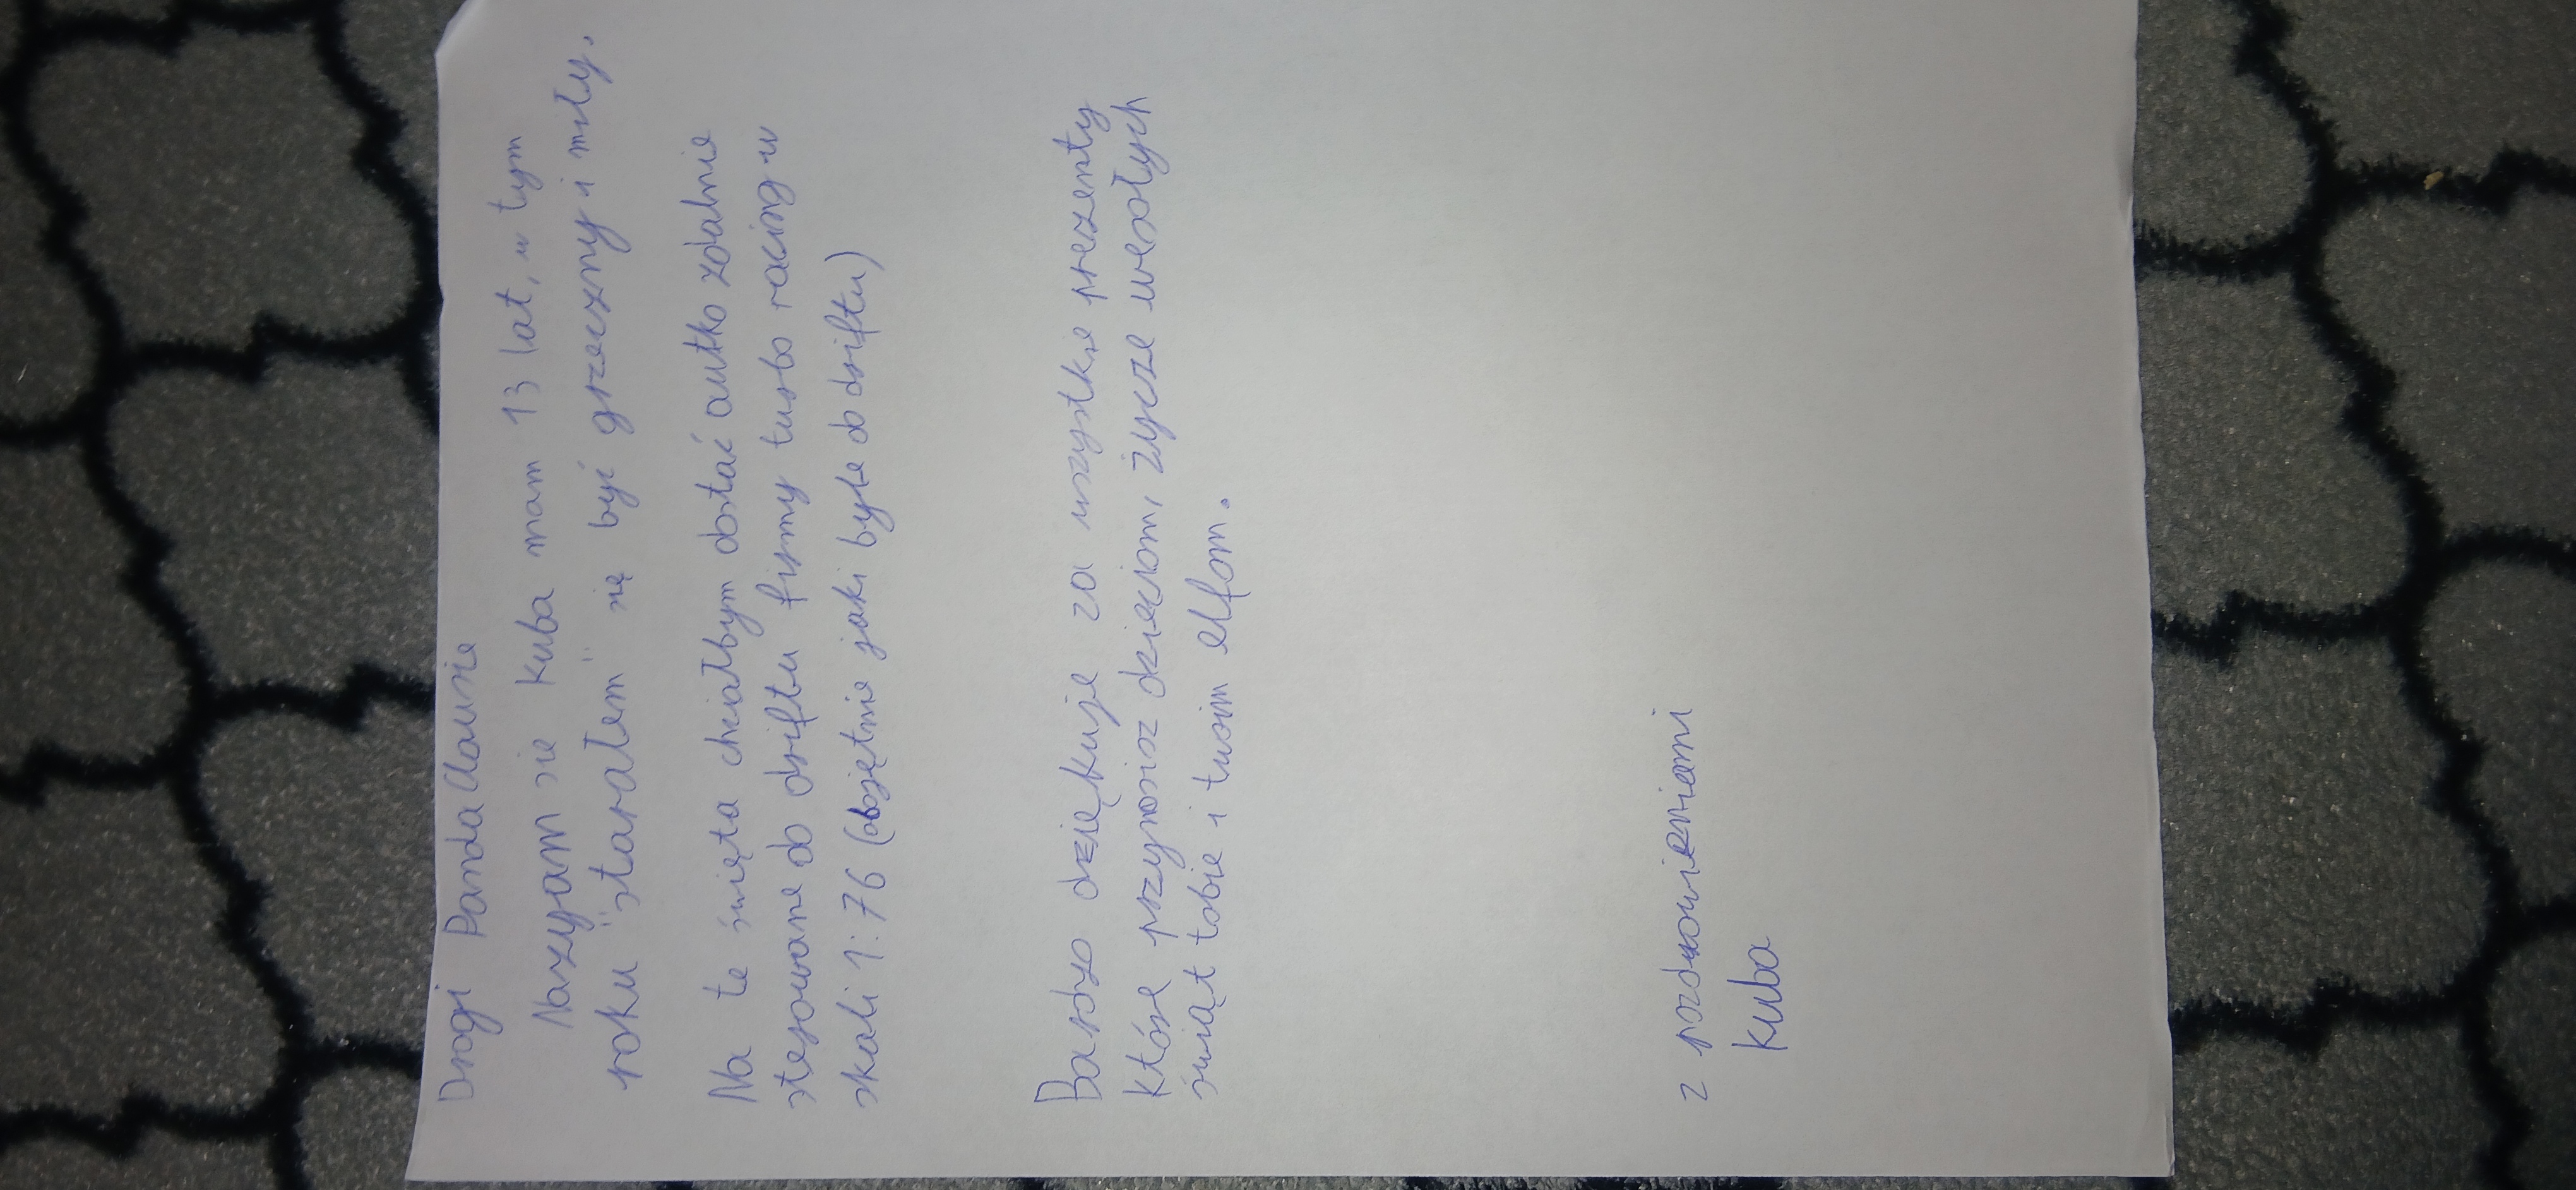 Drogi PandaClausie
Nazyam sie Kuba mam 13 lat, w tym
roku "starałem" się być grzeczny i miły.
Na te święta chciałbym dostać autko zdalnie
sterowane do driftu firmy turbo racing w
skali 1:76 (obojętnie jaki byle do driftu)
Bardzo dziękuje za wszystkie prezenty
które przynosisz dzieciom, życze wesołych
świąt tobie i twoim elfom.
z pozdrowieniami
Kuba